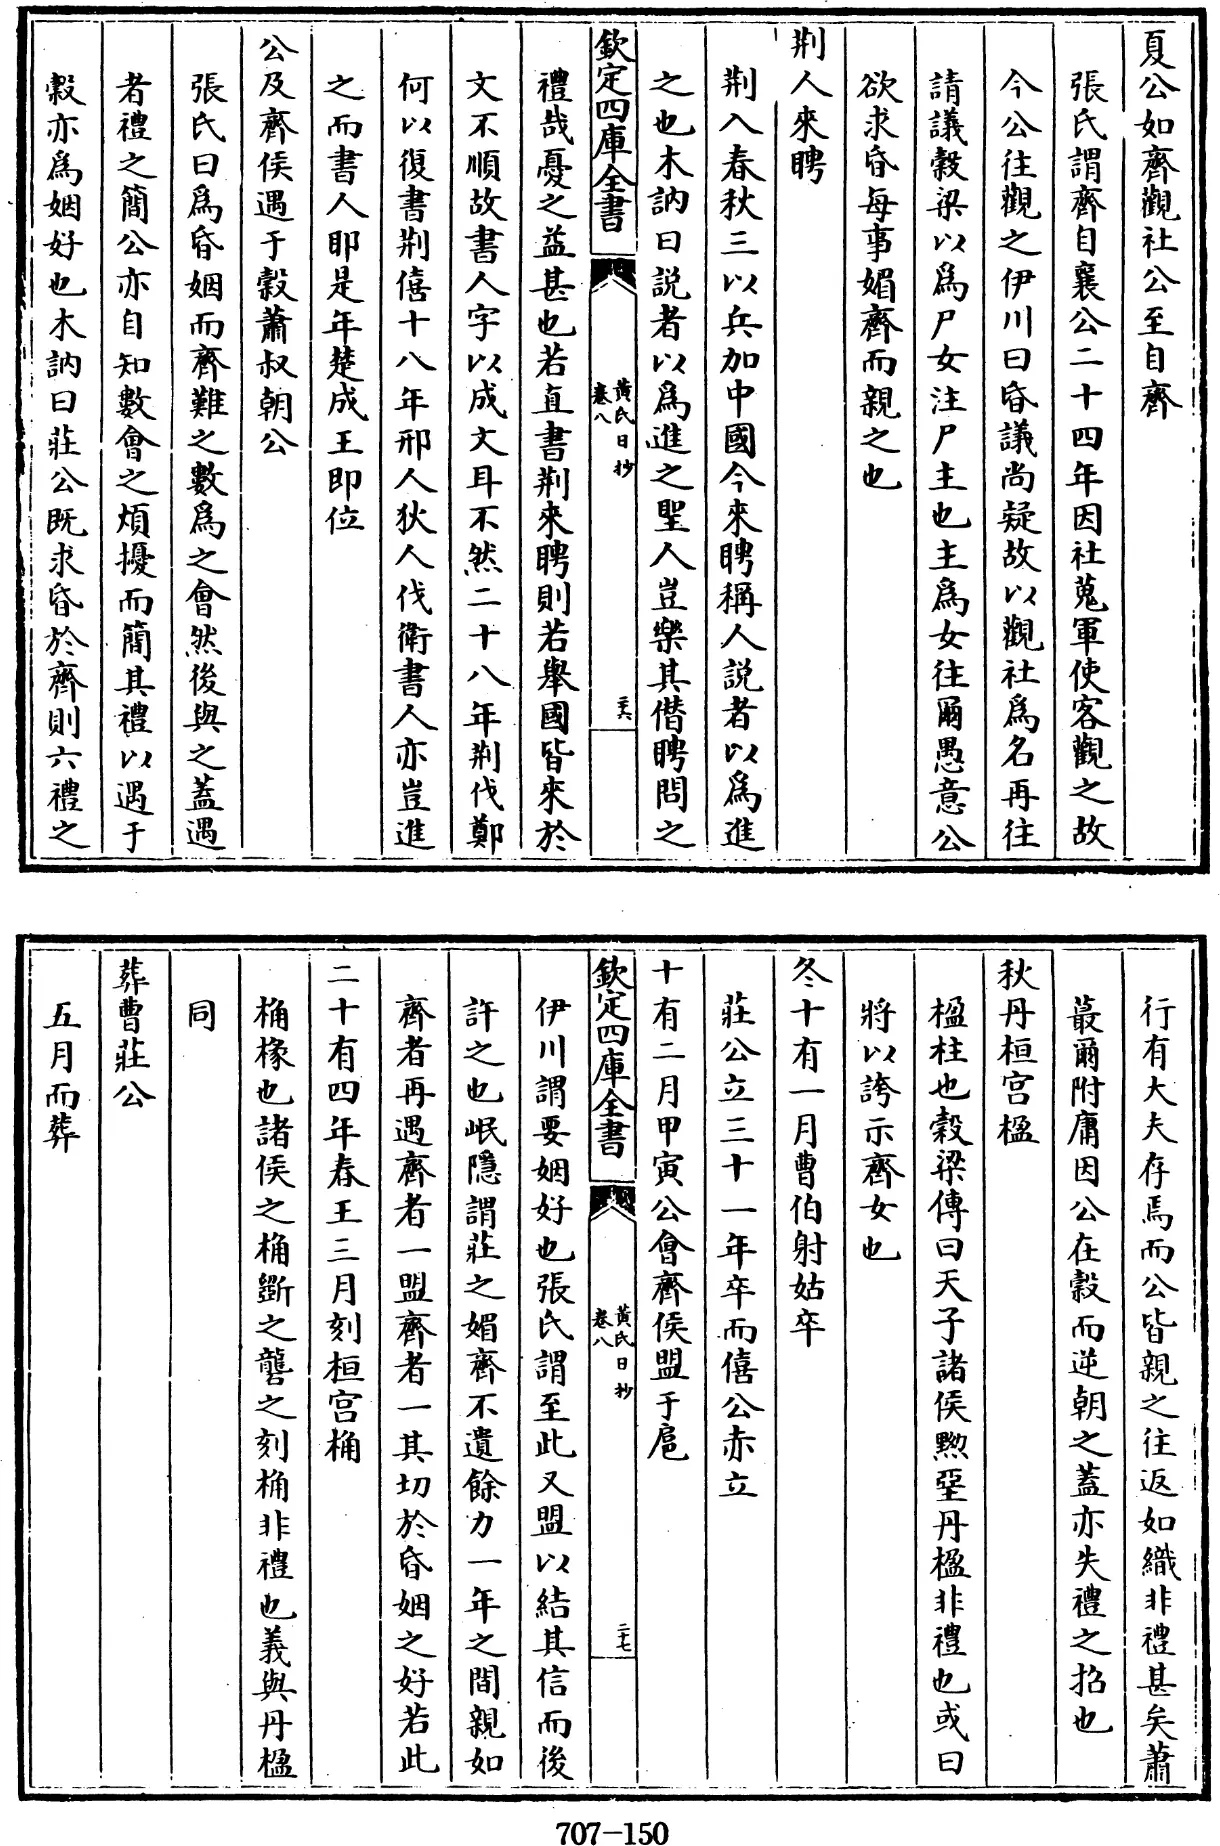 夏公如齊觀社公至自齊
張氏謂齊自襄公二十四年因社蒐軍使客觀之故
今公往觀之伊川曰昏議尚疑故以觀社為名再往
請議穀梁以為尸女注尸主也主為女往爾愚意公
欲求昏每事媚齊而親之也
荆人來聘
荆入春秋三以兵加中國今來聘稱人説者以為進
之也木訥曰説者以為進之聖人豈樂其僣聘問之
欽定四庫全書
黄氏日抄
卷八
二十六
禮哉憂之益甚也若直書荆來聘則若舉國皆來於
文不順故書人字以成文耳不然二十八年荆伐鄭
何以復書荆僖十八年邢人狄人伐衛書人亦豈進
之而書人耶是年楚成王即位
公及齊侯遇于穀蕭叔朝公
張氏曰為昏姻而齊難之數為之會然後與之蓋遇
者禮之簡公亦自知數會之煩擾而簡其禮以遇于
穀亦為姻好也木訥曰莊公既求昏於齊則六禮之
行有大夫存焉而公皆親之往返如織非禮甚矣蕭
蕞爾附庸因公在穀而逆朝之蓋亦失禮之招也
秋丹桓宫楹
楹柱也穀梁傳曰天子諸侯黝堊丹楹非禮也或曰
將以誇示齊女也
冬十有一月曹伯射姑卒
莊公立三十一年卒而僖公赤立
十有二月甲寅公會齊侯盟于扈
欽定四庫全書
黄氏日抄
卷八
二十七
伊川謂要姻好也張氏謂至此又盟以結其信而後
許之也岷隱謂莊之媚齊不遺餘力一年之間親如
齊者再遇齊者一盟齊者一其切於昏姻之好若此
二十有四年春王三月刻桓宫桷
桷椽也諸侯之桷斵之礱之刻桷非禮也義與丹楹
同
葬曹莊公
五月而葬
707-150